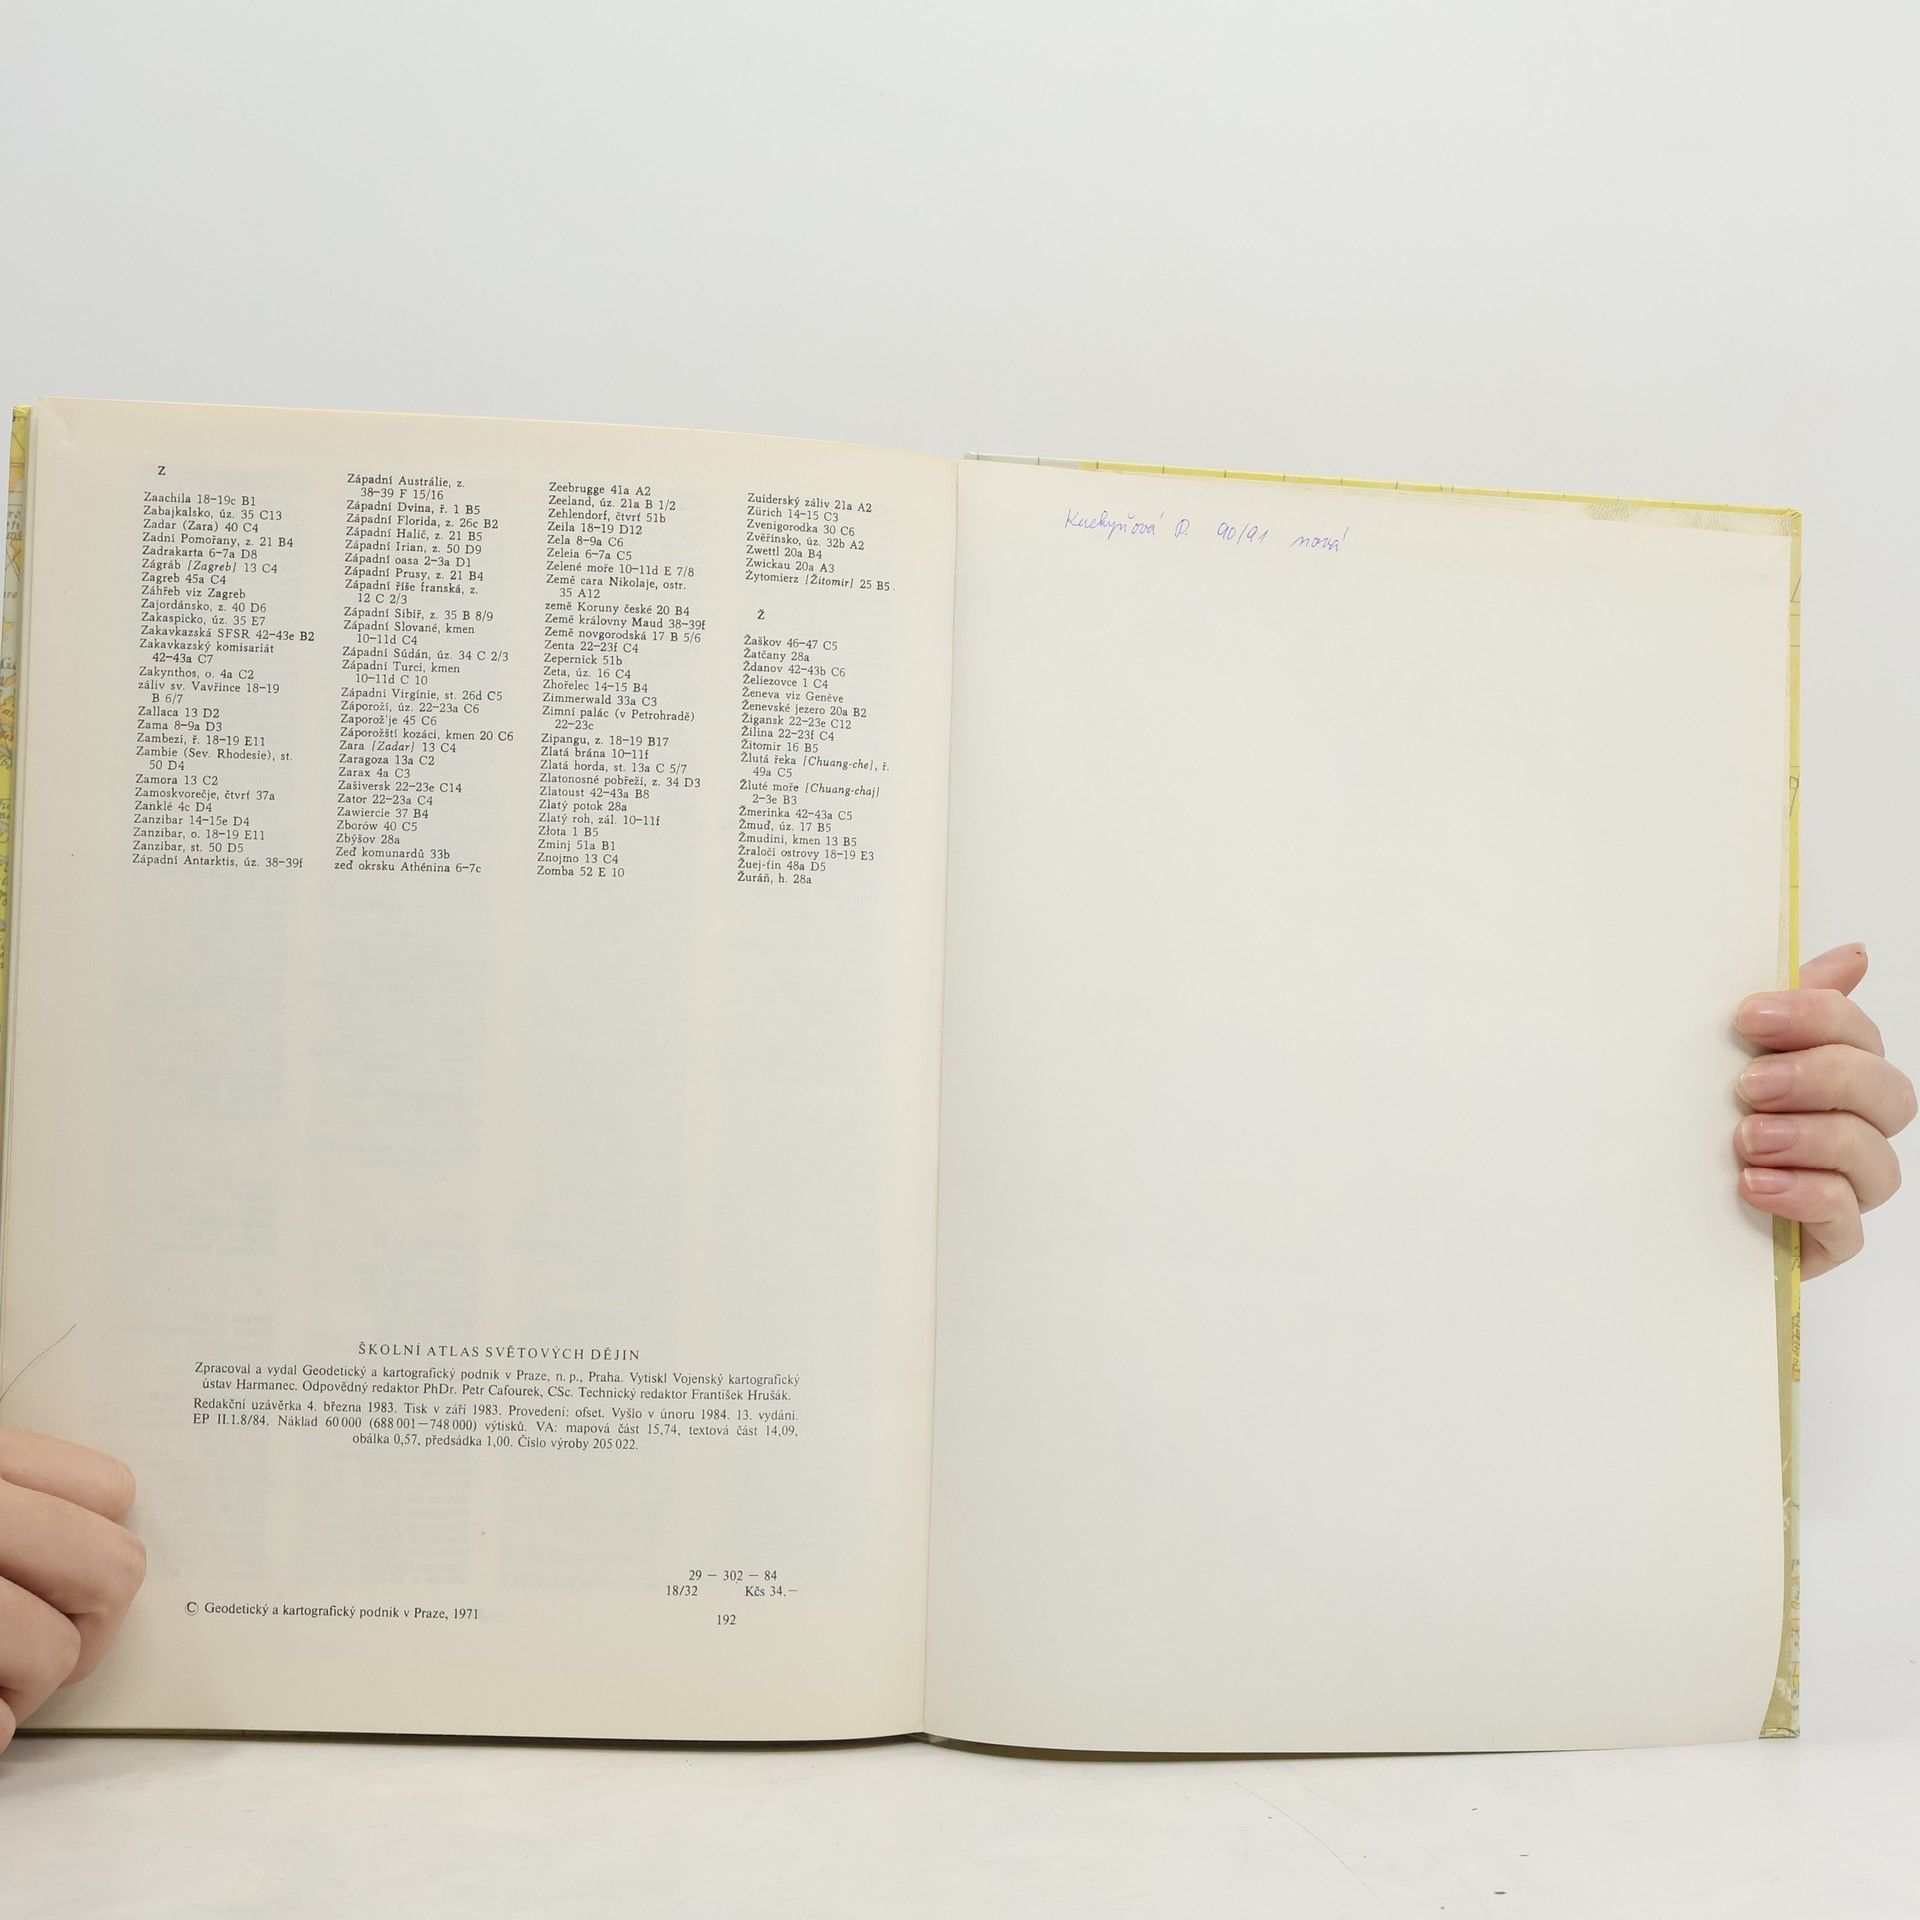 Z
Zaachila 18–19c B1
Zabajkalsko, úz. 35 C13
Zadar (Zara) 40 C4
Zadní Pomořany, z. 21 B4
Zadrakarta 6–7a D8
Zágráb [Zagreb] 13 C4
Zagreb 45a C4
Záhřeb viz Zagreb
Zajordánsko, z. 40 D6
Zakaspicko, úz. 35 E7
Zakavkazská SFSR 42–43e B2
Zakavkazský komisariát
42–43a C7
Zakynthos, o. 4a C2
záliv sv. Vavřince 18–19
B 6/7
Zallaca 13 D2
Zama 8–9a D3
Zambezi, ř. 18–19 E11
Zambie (Sev. Rhodesie), st.
50 D4
Zamora 13 C2
Zamoskvorečje, čtvrť 37a
Zanklé 4c D4
Zanzibar 14–15e D4
Zanzibar, o. 18–19 E11
Zanzibar, st. 50 D5
Západní Antarktis, úz. 38–39f
Západní Austrálie, z.
38–39 F 15/16
Západní Dvina, ř. 1 B5
Západní Florida, z. 26c B2
Západní Halič, z. 21 B5
Západní Irian, z. 50 D9
Západní oasa 2–3a D1
Západní Prusy, z. 21 B4
Západní říše franská, z.
12 C 2/3
Západní Sibiř, z. 35 B 8/9
Západní Slované, kmen
10–11d C4
Západní Súdán, úz. 34 C 2/3
Západní Turci, kmen
10–11d C 10
Západní Virgínie, st. 26d C5
Záporoží, úz. 22–23a C6
Zaporož'je 45 C6
Záporožští kozáci, kmen 20 C6
Zara [Zadar] 13 C4
Zaragoza 13a C2
Zarax 4a C3
Zašiversk 22–23e C14
Zator 22–23a C4
Zawiercie 37 B4
Zborów 40 C5
Zbýšov 28a
Zeď komunardů 33b
zeď okrsku Athénina 6–7c
Zeebrugge 41a A2
Zeeland, úz. 21a B 1/2
Zehlendorf, čtvrť 51b
Zeila 18–19 D12
Zela 8–9a C6
Zeleia 6–7a C5
Zelené moře 10–11d E 7/8
Země cara Nikolaje, ostr.
35 A12
země Koruny české 20 B4
Země královny Maud 38–39f
Země novgorodská 17 B 5/6
Zenta 22–23f C4
Zepernick 51b
Zeta, úz. 16 C4
Zhořelec 14–15 B4
Zimmerwald 33a C3
Zimní palác (v Petrohradě)
22–23c
Zipangu, z. 18–19 B17
Zlatá brána 10–11f
Zlatá horda, st. 13a C 5/7
Zlatonosné pobřeží, z. 34 D3
Zlatoust 42–43a B8
Zlatý potok 28a
Zlatý roh, zál. 10–11f
Złota 1 B5
Zminj 51a B1
Znojmo 13 C4
Zomba 52 E 10
Zuiderský záliv 21a A2
Zürich 14–15 C3
Zvenigorodka 30 C6
Zvěřínsko, úz. 32b A2
Zwettl 20a B4
Zwickau 20a A3
Żytomierz [Žitomir] 25 B5.
Ž
Žaškov 46–47 C5
Žatčany 28a
Ždanov 42–43b C6
Želiezovce 1 C4
Ženeva viz Genève
Ženevské jezero 20a B2
Žigansk 22–23e C12
Žilina 22–23f C4
Žitomir 16 B5
Žlutá řeka [Chuang-che], ř.
49a C5
Žluté moře [Chuang-chaj]
2–3e B3
Žmerinka 42–43a C5
Žmuď, úz. 17 B5
Žmudini, kmen 13 B5
Žraločí ostrovy 18–19 E3
Žuej-ťin 48a D5
Žuráň, h. 28a
ŠKOLNÍ ATLAS SVĚTOVÝCH DĚJIN
Zpracoval a vydal Geodetický a kartografický podnik v Praze, n. p., Praha. Vytiskl Vojenský kartografický
ústav Harmanec. Odpovědný redaktor PhDr. Petr Cafourek, CSc. Technický redaktor František Hrušák.
Redakční uzávěrka 4. března 1983. Tisk v září 1983. Provedení: ofset. Vyšlo v únoru 1984. 13. vydání.
EP II.1.8/84. Náklad 60 000 (688 001—748 000) výtisků. VA: mapová část 15,74, textová část 14,09,
obálka 0,57, předsádka 1,00. Číslo výroby 205 022.
29 — 302 — 84
18/32 Kčs 34.—
© Geodetický a kartografický podnik v Praze, 1971
192
Kuchyňová D. 90/91 nová